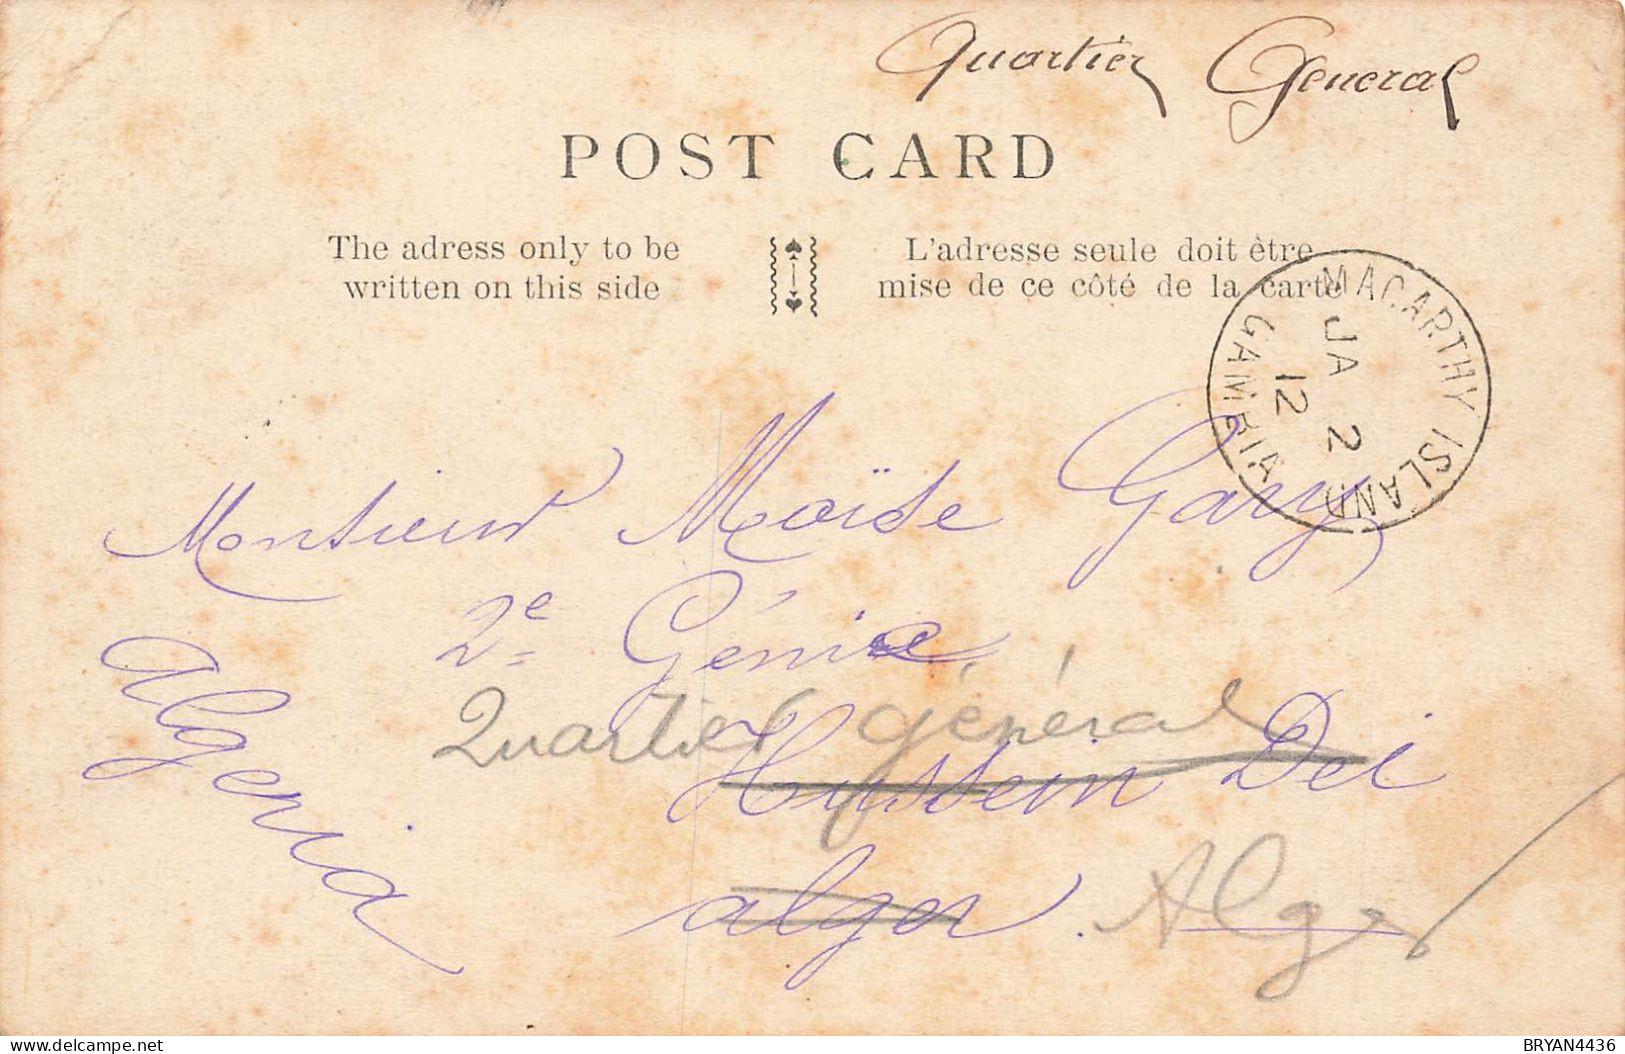 Quartier General
POST CARD
The adress only to be
written on this side
L'adresse seule doit être
mise de ce côté de la carte
MACARTHY ISLAND
GAMBIA
JA 2
12
Monsieur Moïse Gary
2e Génie
Quartier général
Hussein Dei
alger. Alger
Algeria
delcampe.net
BRYAN4436